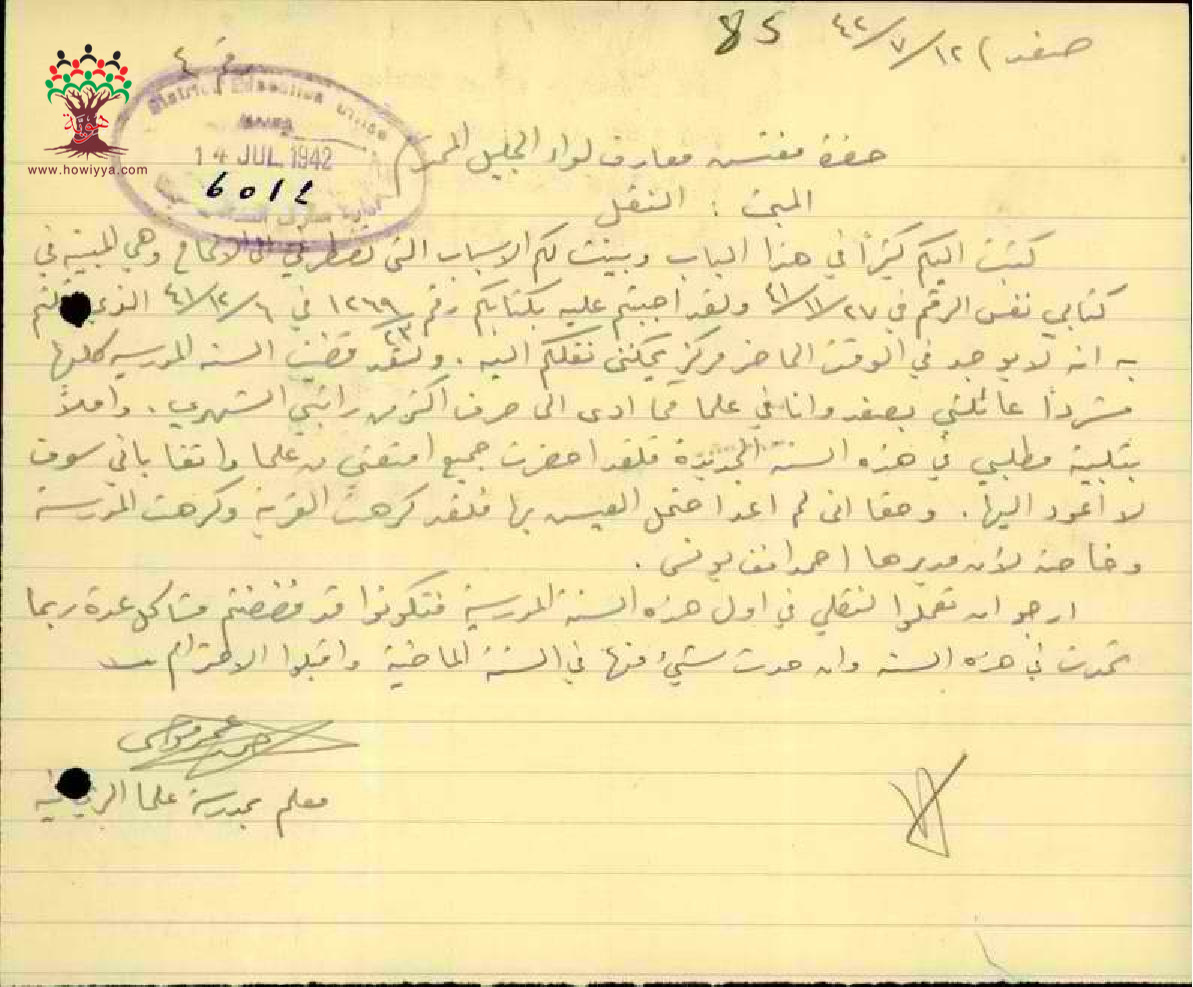 صفد) ١٢/٧/٤٢
85
رقم ٤
هوية
www.howiyya.com
District Education Office
14 JUL 1942
6012
حضرة مفتش معارف لواء الجليل المحترم
المبحث : النقل
كتبت اليكم كثيراً في هذا الباب وبينت لكم الاسباب التي تضطرني الى الالحاح وهي المبينة في
كتابي نفس الرقم في ٢٧/١١/٤١ ولقد اجبتم عليه بكتابكم رقم ١٢٦٩/٢٣ في ٦/١٢/٤١ الذي قلتم
به انه لا يوجد في الوقت الحاضر مركز يمكنني نقلكم اليه . ولقد قضيت السنة المدرسيه كلها
مشرداً عائلتي بصفد وانا في علما مما ادى الى صرف اكثر من راتبي الشهري . واملاً
بتلبية مطلبي في هذه السنة الجديدة فلقد احضرت جميع امتعتي من علما واثقا باني سوف
لا اعود اليها . وحقا اني لم اعد احتمل العيش بها فلقد كرهت القرية وكرهت المدرسة
وخاصة لأن مديرها احمد افندي يونس .
ارجو ان تعملوا لنقلي في اول هذه السنة المدرسية فتكونوا قد فضضتم مشاكل عدة ربما
تحدث في هذه السنه وان حدث شيئ منها في السنة الماضية واقبلوا الاحترام
معلم بمدرسة علما